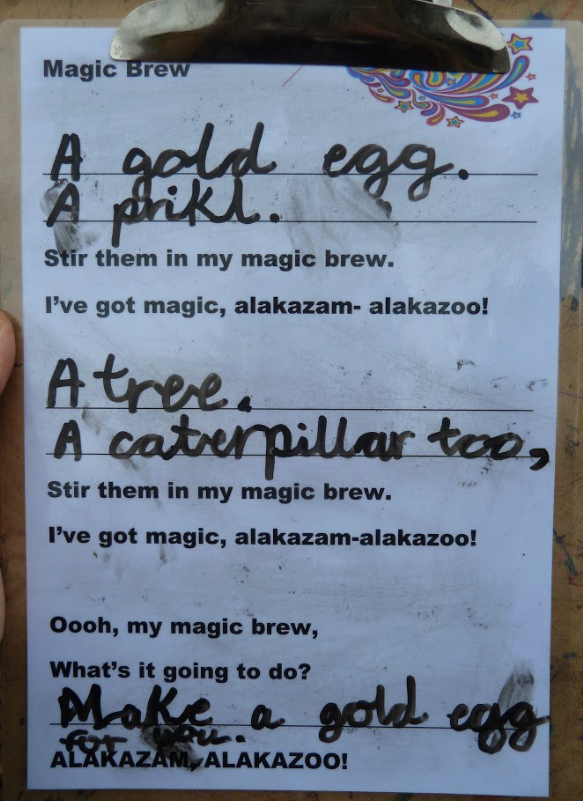 Magic Brew
A gold egg.
A prikl.
Stir them in my magic brew.
I've got magic, alakazam- alakazoo!
A tree.
A caterpillar too,
Stir them in my magic brew.
I've got magic, alakazam-alakazoo!
Oooh, my magic brew,
What's it going to do?
Make a gold egg
for you.
ALAKAZAM, ALAKAZOO!